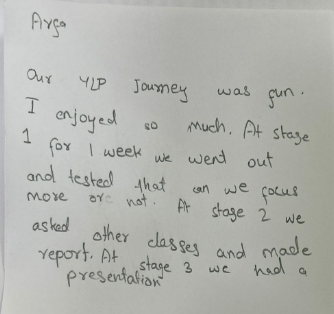 Arga
Our YLP Journey was fun.
I enjoyed so much. At stage
1 for 1 week we went out
and tested that can we focus
more or not. At stage 2 we
asked other classes and made
report. At stage 3 we had a
presentation